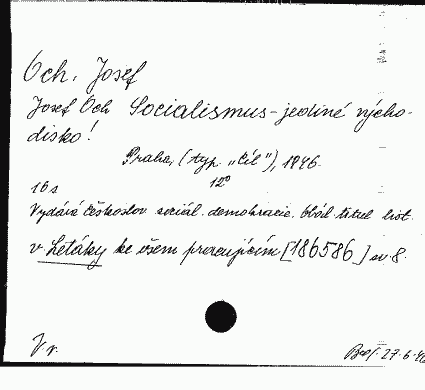 Och, Josef
Josef Och Socialismus - jediné výcho-
disko!
Praha, (typ. „Cíl"), 1946.
12°
16 s
Vydává českoslov. sociál. demokracie. Obál. titul. list.
v Letáky ke všem pracujícím [186586] sv. 8.
V. r.
27.6.46